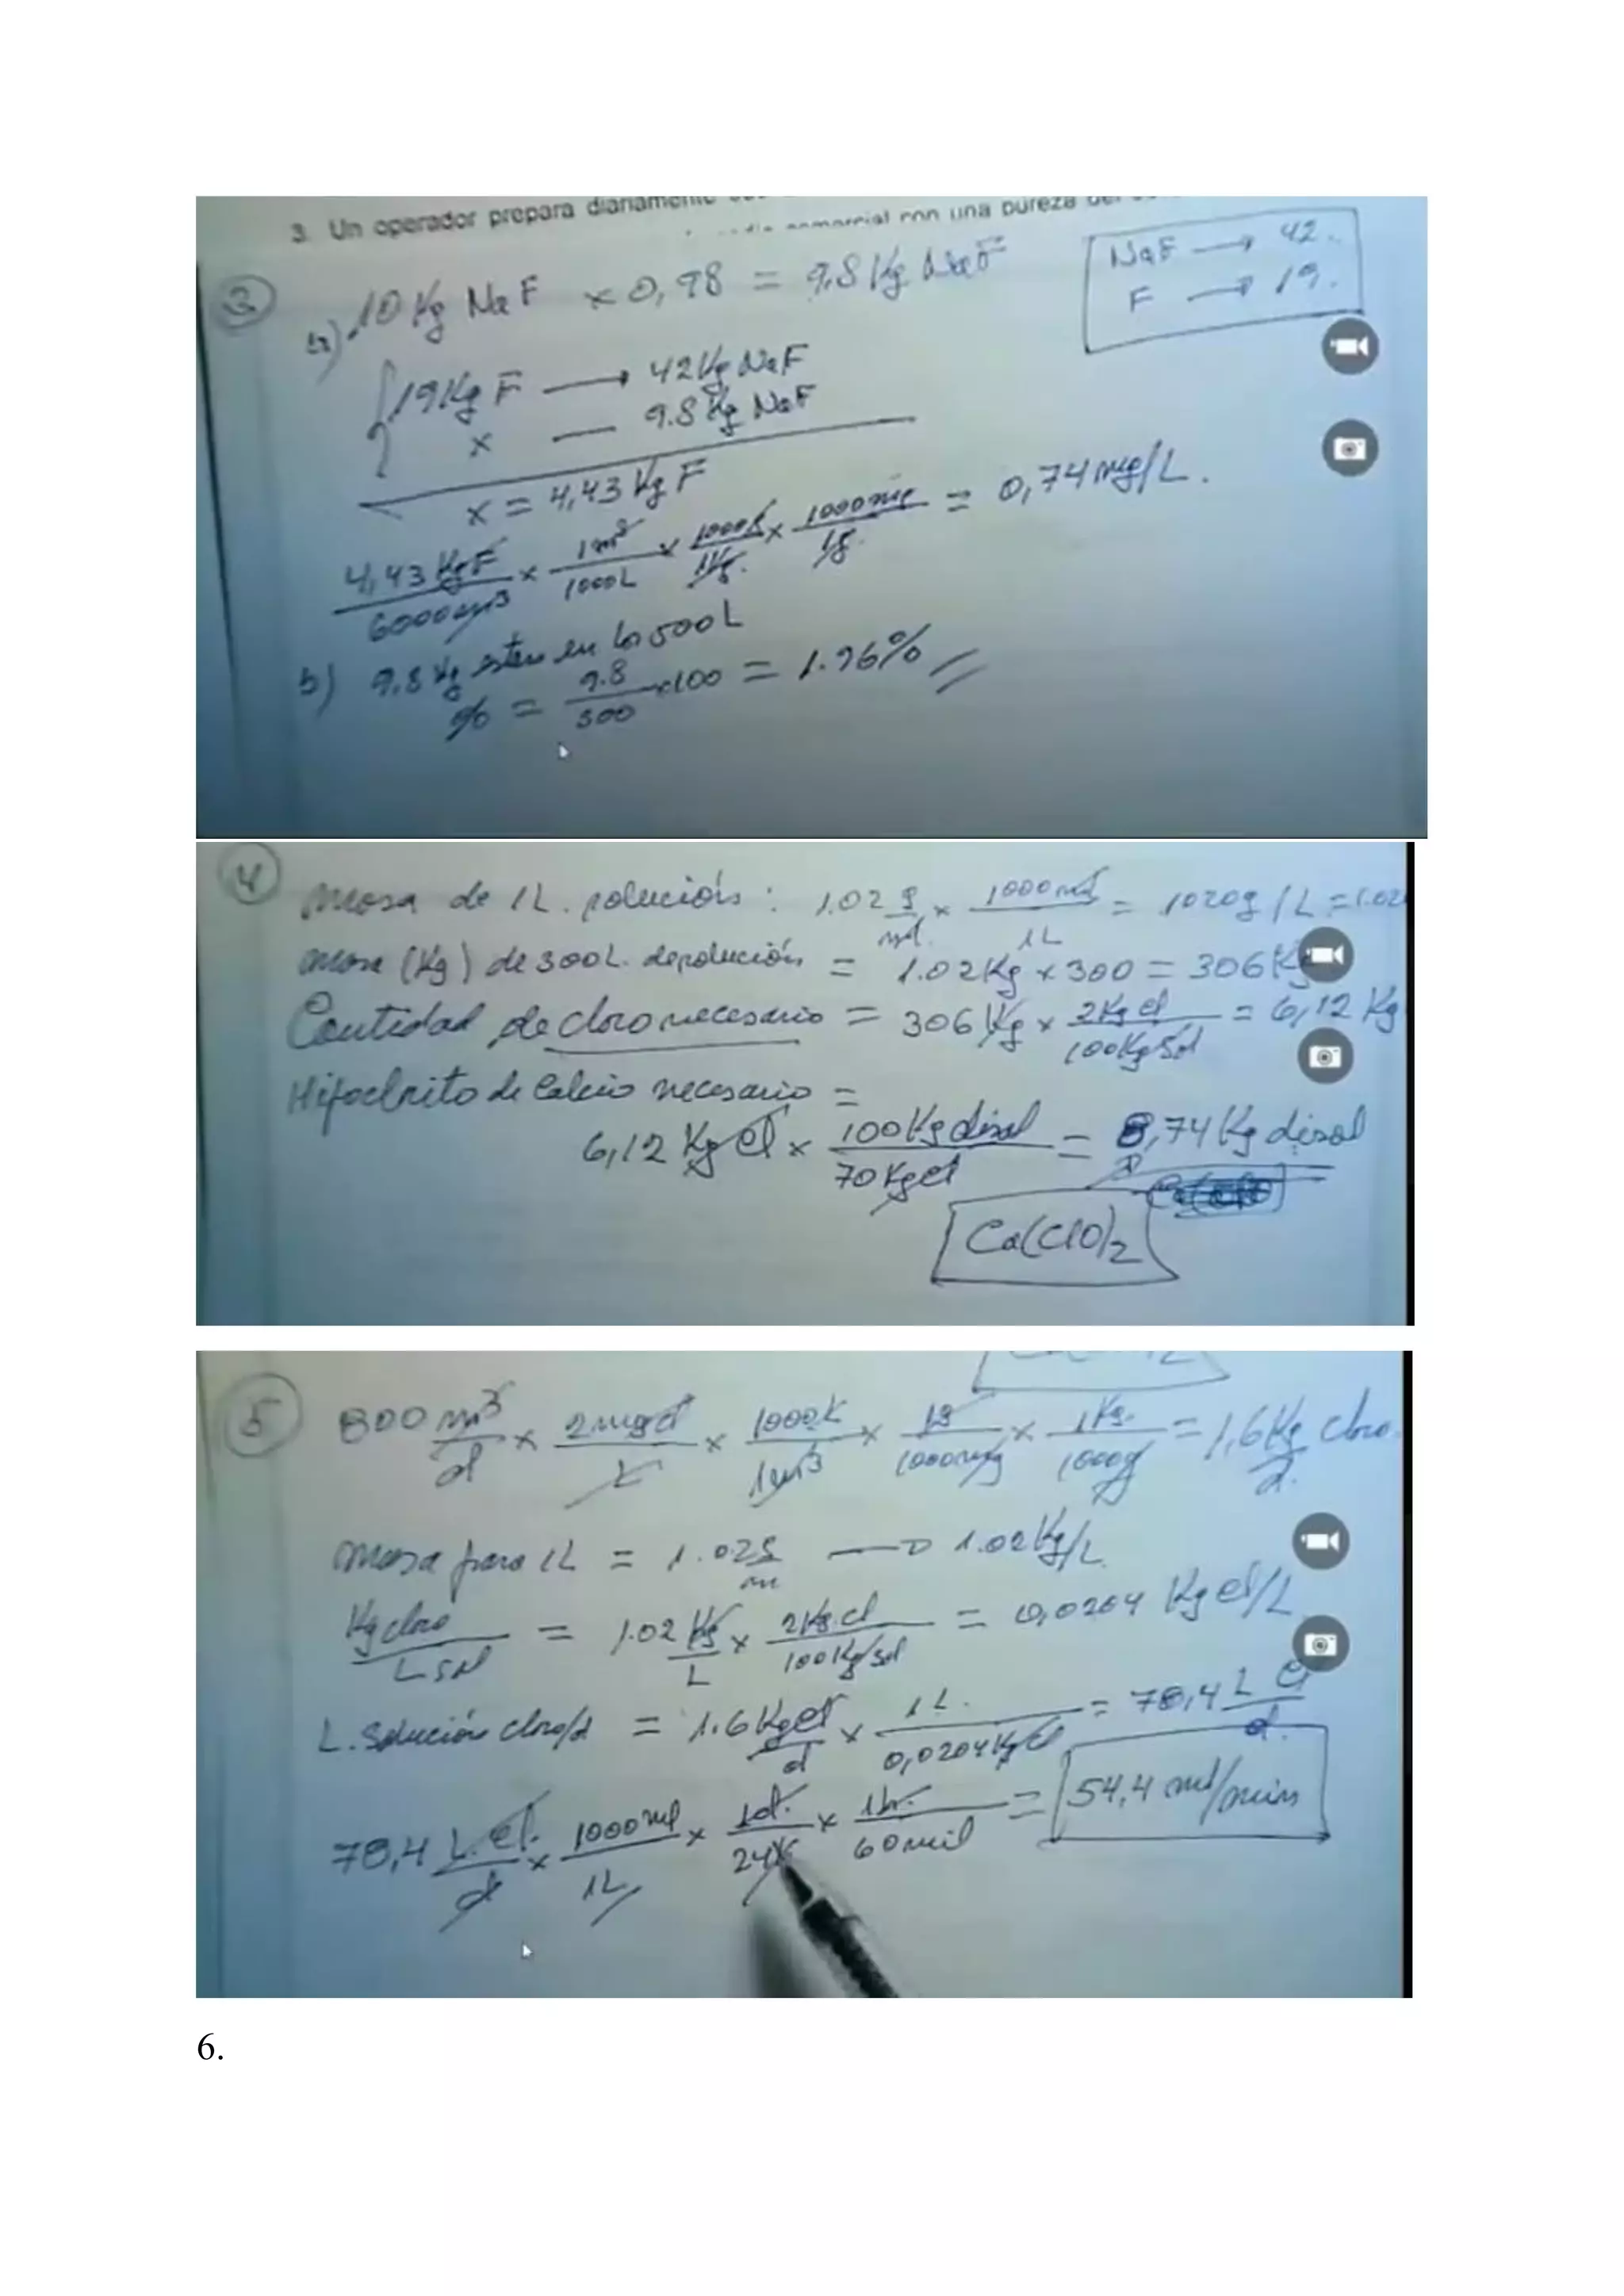 3. Un operador prepara diariamente
comercial con una pureza del
3
NaF → 42.
F → 19.
a) 10 Kg NaF x 0,98 = 9,8 Kg NaF
19 Kg F → 42 Kg NaF
x — 9.8 Kg NaF
x = 4,43 Kg F
4,43 Kg F / 6000 m3 x 1 m3 / 1000L x 1000g / 1Kg. x 1000mg / 1g. = 0,74 mg/L.
b) 9.8 Kg estan en los 500L
% = 9.8 / 500 x100 = 1.96%
4
Masa de 1L. solución: 1.02 g / ml. x 1000 ml / 1L = 1020g / L = 1.02
Masa (Kg) de 300L. de solución = 1.02Kg x 300 = 306 Kg
Cantidad de cloro necesario = 306 Kg x 2Kg cl / 100Kg sol = 6,12 Kg
Hipoclorito de Calcio necesario =
6,12 Kg cl x 100 Kg disol / 70 Kg cl = 8,74 Kg disol
Ca(ClO)2
5
800 m3 / d x 2 mg cl / L x 1000L / 1m3 x 1g / 1000mg x 1Kg. / 1000g = 1,6 Kg cloro. / d.
Masa para 1L = 1.02 g / m → 1.02 Kg/L
Kg cloro / L sol = 1.02 Kg / L x 2Kg.cl / 100 Kg sol = 0,0204 Kg cl/L
L. solución cloro/d = 1.6 Kg cl / d x 1 L. / 0,0204 Kg cl = 78,4 L Cl / d.
78,4 L.cl. / d x 1000 ml / 1L x 1d. / 24h x 1h. / 60 min = 54,4 ml/min
6.